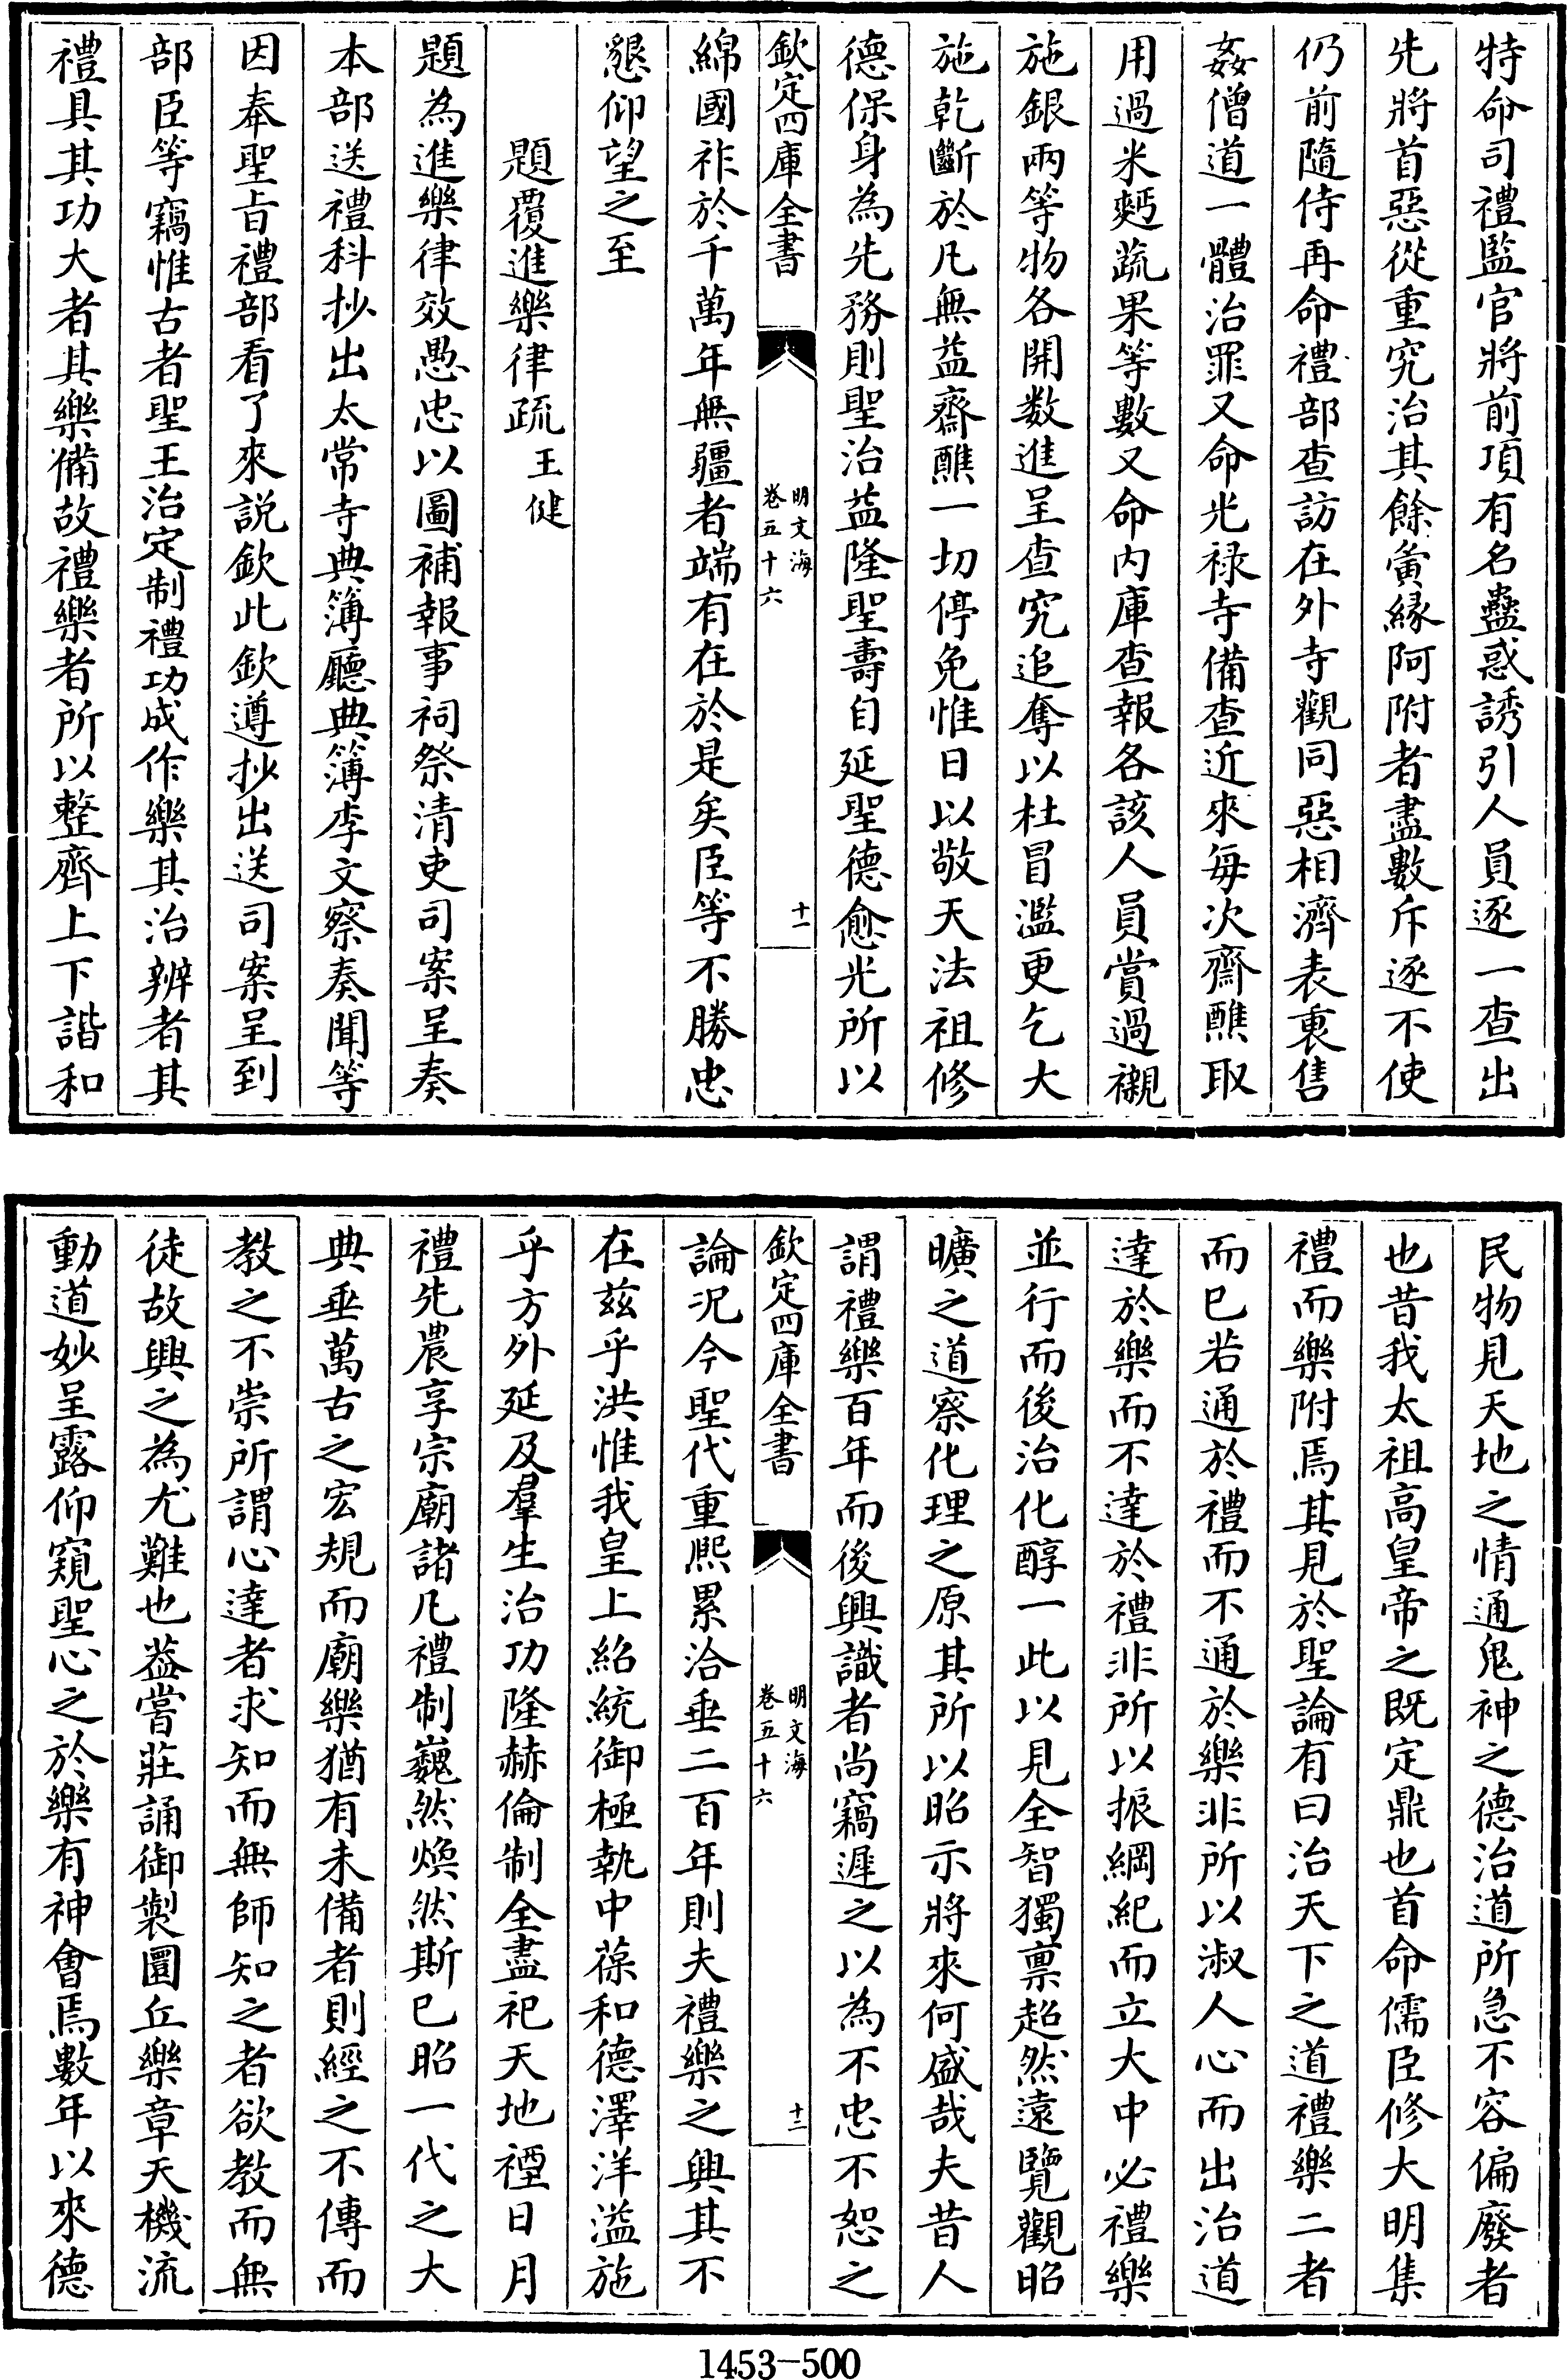 特命司禮監官將前項有名蠱惑誘引人員逐一查出
先將首惡從重究治其餘夤緣阿附者盡數斥逐不使
仍前隨侍再命禮部查訪在外寺觀同惡相濟表裏售
姦僧道一體治罪又命光禄寺備查近來每次齋醮取
用過米麪蔬果等數又命内庫查報各該人員賞過襯
施銀兩等物各開数進呈查究追奪以杜冒濫更乞大
施乾斷於凡無益齋醮一切停免惟日以敬天法祖修
德保身為先務則聖治益隆聖壽自延聖德愈光所以
欽定四庫全書
明文海
卷五十六
十一
綿國祚於千萬年無疆者端有在於是矣臣等不勝忠
懇仰望之至
題覆進樂律疏 王健
題為進樂律效愚忠以圖補報事祠祭清吏司案呈奏
本部送禮科抄出太常寺典簿廳典簿李文察奏聞等
因奉聖旨禮部看了來説欽此欽遵抄出送司案呈到
部臣等竊惟古者聖王治定制禮功成作樂其治辨者其
禮具其功大者其樂備故禮樂者所以整齊上下諧和
民物見天地之情通鬼神之德治道所急不容偏廢者
也昔我太祖高皇帝之既定鼎也首命儒臣修大明集
禮而樂附焉其見於聖論有曰治天下之道禮樂二者
而已若通於禮而不通於樂非所以淑人心而出治道
達於樂而不達於禮非所以振綱紀而立大中必禮樂
並行而後治化醇一此以見全智獨禀超然遠覽觀昭
曠之道察化理之原其所以昭示將來何盛哉夫昔人
謂禮樂百年而後興識者尚竊遲之以為不忠不恕之
欽定四庫全書
明文海
卷五十六
十二
論況今聖代重熙累洽垂二百年則夫禮樂之興其不
在兹乎洪惟我皇上紹統御極執中葆和德澤洋溢施
乎方外延及羣生治功隆赫倫制全盡祀天地禋日月
禮先農享宗廟諸凡禮制巍然煥然斯已昭一代之大
典垂萬古之宏規而廟樂猶有未備者則經之不傳而
教之不崇所謂心達者求知而無師知之者欲教而無
徒故興之為尤難也蓋嘗莊誦御製圜丘樂章天機流
動道妙呈露仰窺聖心之於樂有神會焉數年以來德
1453-500